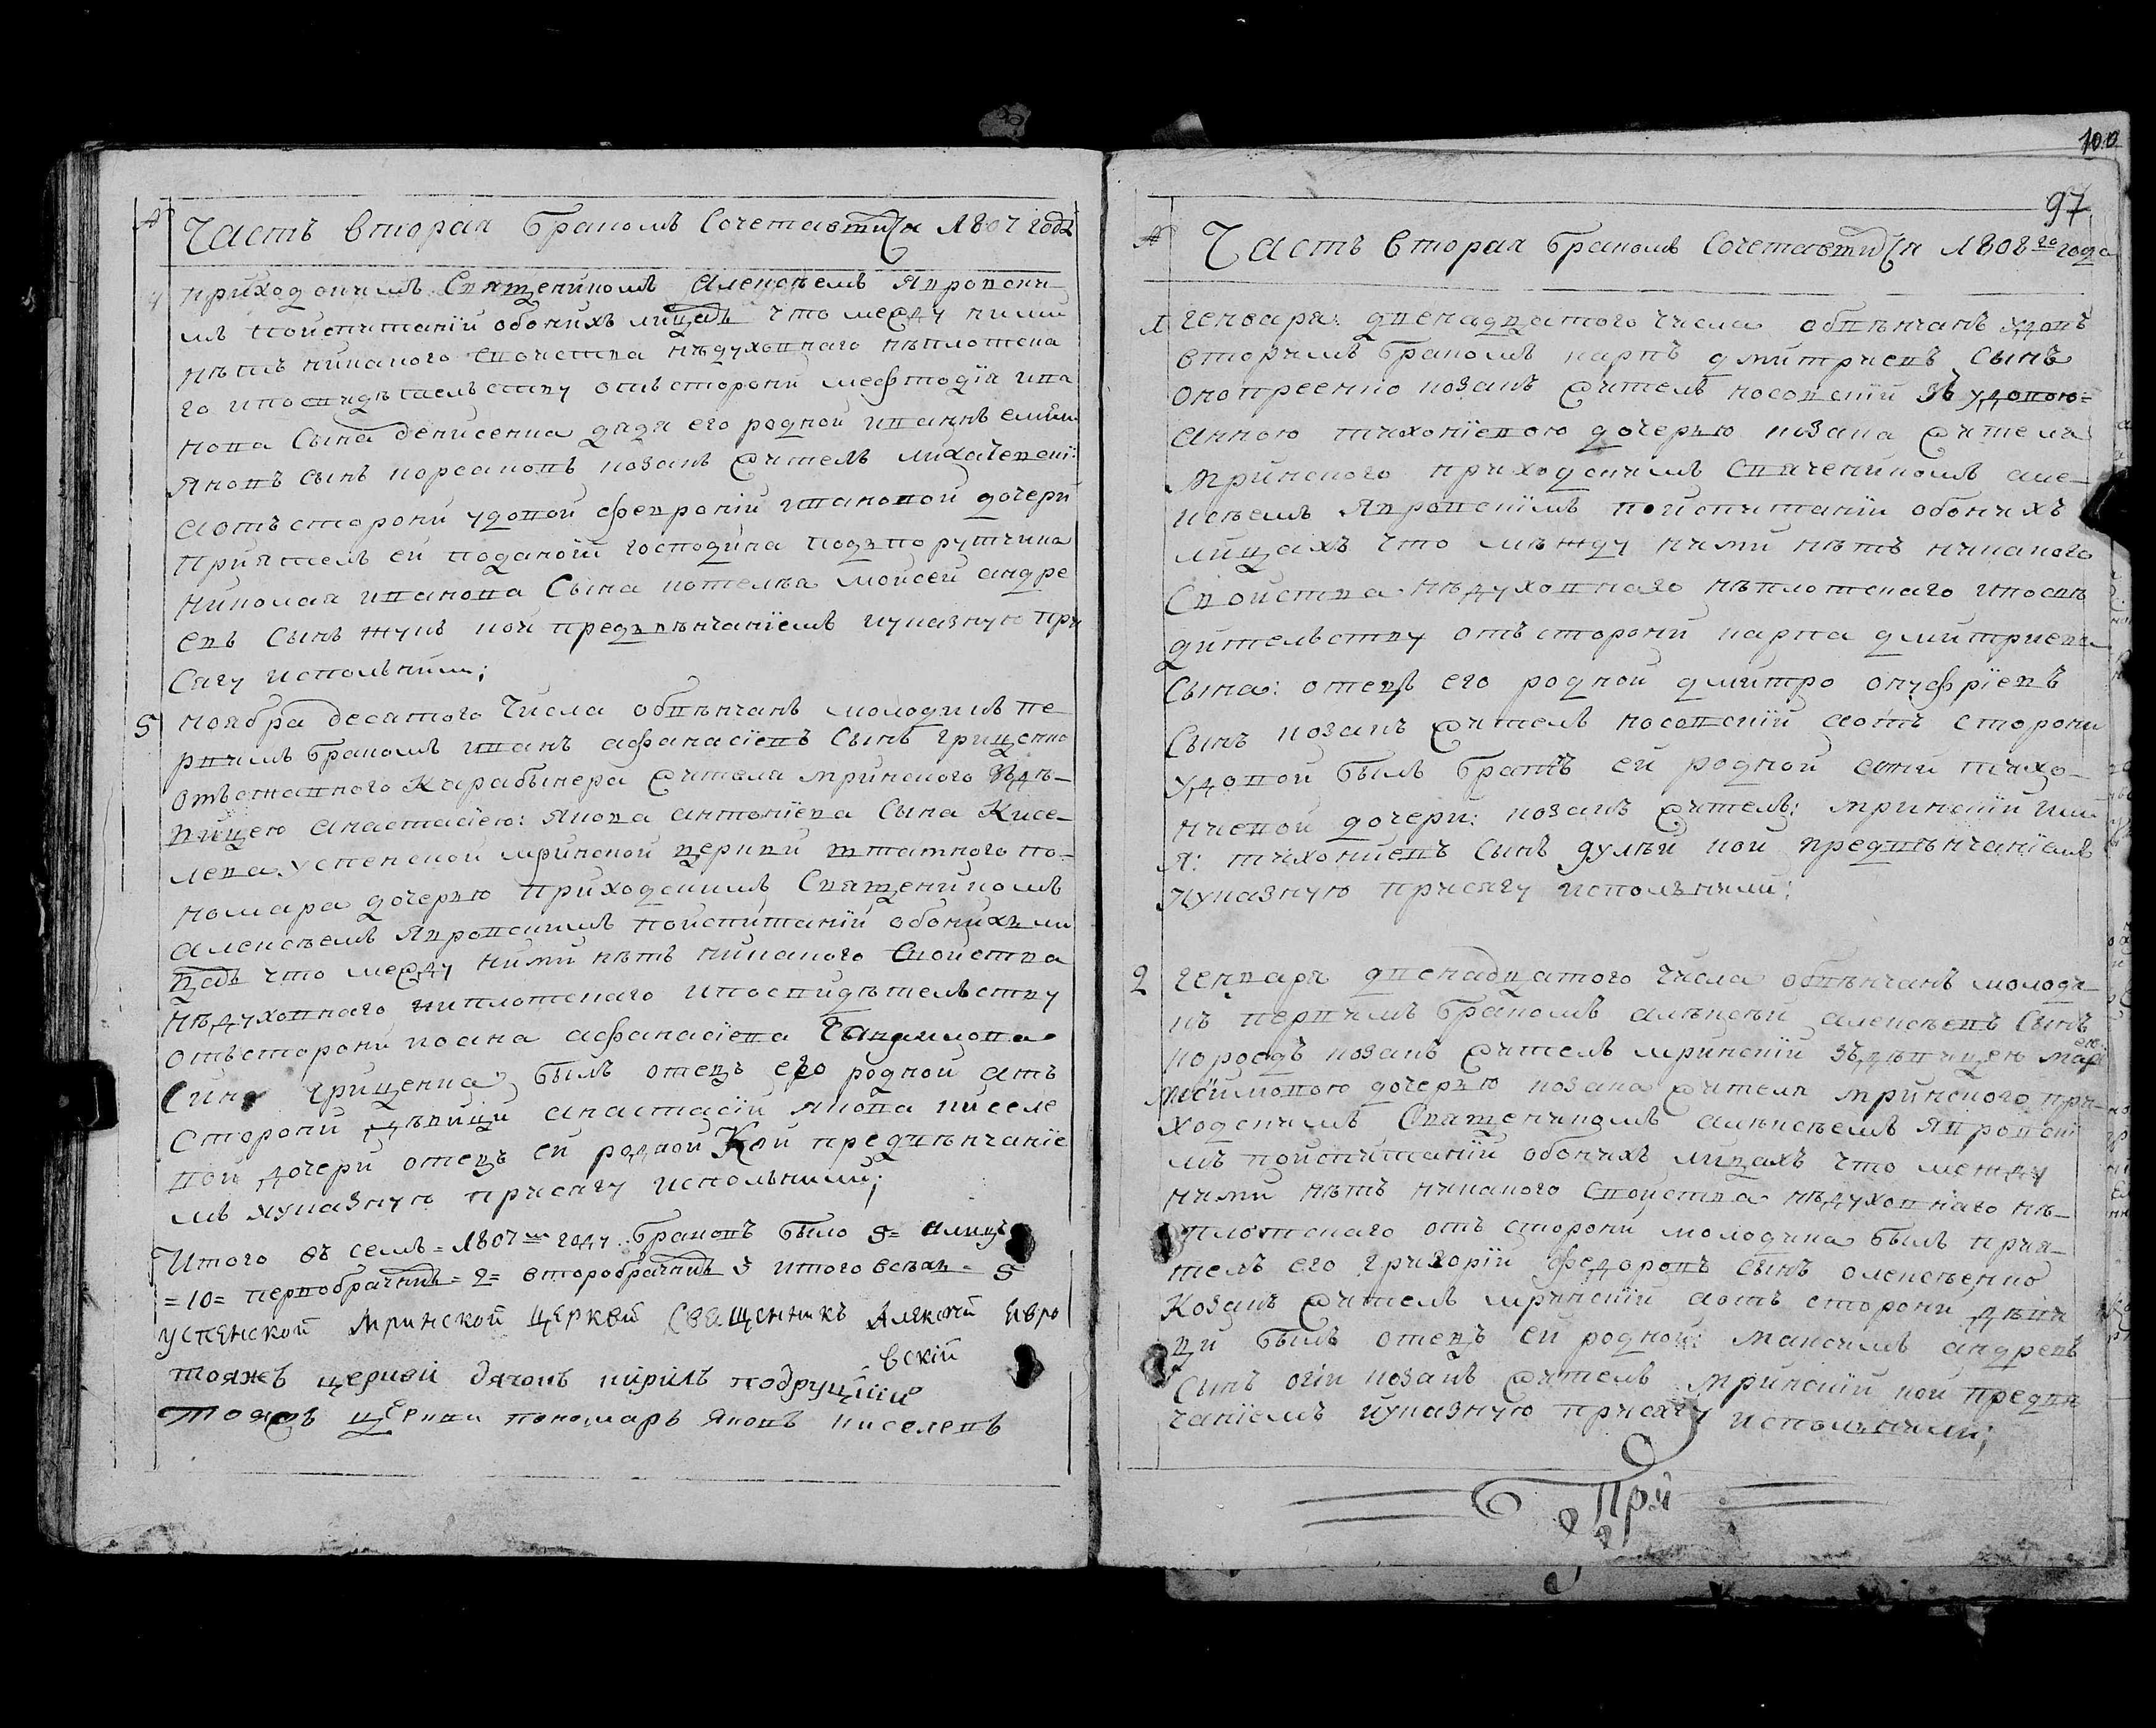 № Часть вторая браком Сочетавшихся 1807 года
4 приходскимъ Священикомъ Алексѣемъ Явровски
мъ поиспитаніи обоихъ лицахъ что между ними
нѣтъ никакого Свойства нѣдухопнаго нѣплотска
го ипосвидѣтельству отъсторони мефтодія ива
нова Сына денисенка дядя его родной
Яковъ сынъ козакъ житель
аотъсторони удовой февроніи ивановой дочери
Приятель ей поданой господина подпорутчика
николая иванова Сына котелева моисей андре
евъ Сынъ жукъ кои предвѣнчаніемъ иуказную при
сягу испольнили;
5 ноября десатого Числа обвѣнчанъ молодикъ пе
рвимъ бракомъ иванъ афанасіевъ Сынъ грищенко
отъставного Карабынера жителя мринского здѣ-
вицею анастасіею: якова антоніева Сына Кисе-
лева успенской мринской церкви штатного по-
номара дочерью приходскимъ Священикомъ
алексѣемъ явровскимъ поиспитаніи обоихъ ли
цахъ что между ними нѣтъ никакого Свойства
нѣдухопнаго ниплотскаго ипосвидѣтельству
отъсторони иоана афанасіева
Сина грищенка былъ отецъ его родной аотъ
Сторони дѣвици анастасіи якова киселе
вой дочери отецъ ей родной Кои предвѣнчаніе
мъ иуказную присягу испольнили;
Итого въ семъ = 1807мъ году браковъ было 5= алицъ
=10= первобрачнихъ = 2= второбрачнихъ 3 итого всѣхъ = 5
успенской мринской церквй Священникъ Алексѣй Явро
вскій
тояжъ церкви дячокъ кирилъ подруцкій
тояжъ церкви пономарь яковъ киселевъ
100
97
№ Часть вторая браком Сочетавшихся 1808го года
1 генвара: двенадцатого числа обвѣнчанъ удовъ
вторимъ бракомъ карпъ дмитриевъ Сынъ
онопреенко козакъ житель носовскій зъ удовою=
анною тихоніевою дочерью козака жителя
мринского приходскимъ Свяченикомъ але-
ксѣемъ явровскімъ поиспитаніи обоихъ
лицахъ что мѣжду ними нѣтъ никакого
Свойства нѣдухопнаго нѣплотскаго ипосвѣ
дителству отъсторони карпа дмитриева
Сына: отецъ его родной дмитро онуфріевъ
Сынъ козакъ житель носовскій аотъ сторони
удовой былъ братъ ей родной анни тихо-
ниевой дочери: козакъ житель: мринскій или
я: тихониевъ Сынъ дулѣй кои предвѣнчаніемъ
иуказную присягу исполънили:
2 генваря двенадцатого числа обвѣнчанъ молоди
къ первимъ бракомъ алѣксѣй алексѣевъ Сынъ
козакъ житель мринскій зъдѣвицею марі
ею
максимовою дочерью козака жителя мринского при-
ходскимъ Священикомъ алѣксѣемъ явровскі
мъ поиспитаніи обоихъ лицахъ что между
ними нѣтъ никакого свойства нѣдухопнаго нѣ-
плотскаго отъ сторони молодика былъ прия-
тель его григорій федоровъ сынъ олексѣенко
Козакъ житель мринскій аотъ сторони дѣви
ци былъ отецъ ей родной: максимъ андревъ
Сынъ огій козакъ житель мринскій кои предвѣ
чаніемъ иуказную присягу исполънили;
При